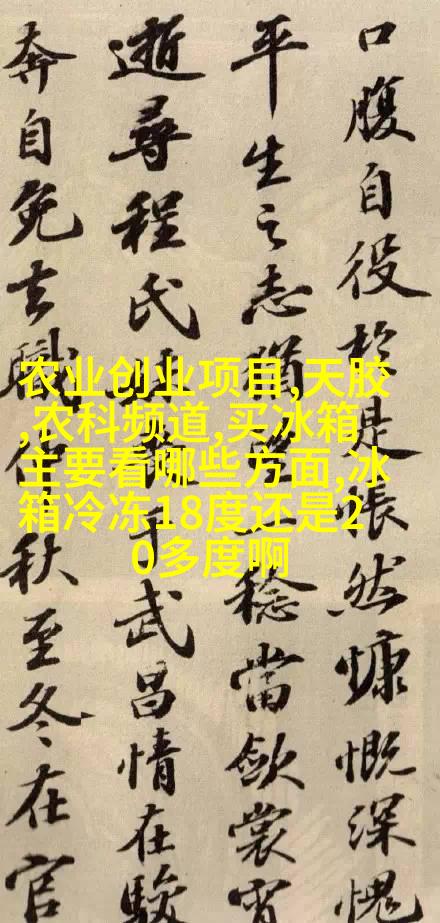 口腹自役於是悵然慷慨深愧
平生之志猶一稔當斂裳宵
逝尋程氏于武昌情在駿
奔自免去職仲秋至冬在官
农业创业项目,天胶
,农科频道,买冰箱
主要看哪些方面,冰
箱冷冻18度还是2
0多度啊